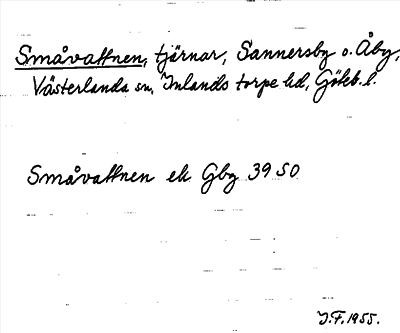 Småvattnen, tjärnar, Sannersby o. Åby,
Västerlanda sn, Inlands torpe hd, Göteb. l.
Småvattnen ek Gbg 39 SO
J.F. 1955.